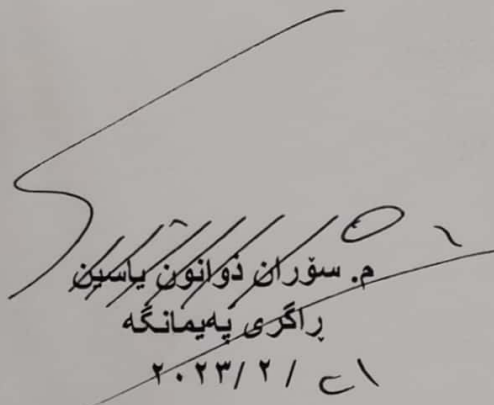 م. سۆران ذوانون یاسین
ڕاگری پەیمانگە
/ ٢ / ٢٠٢٣